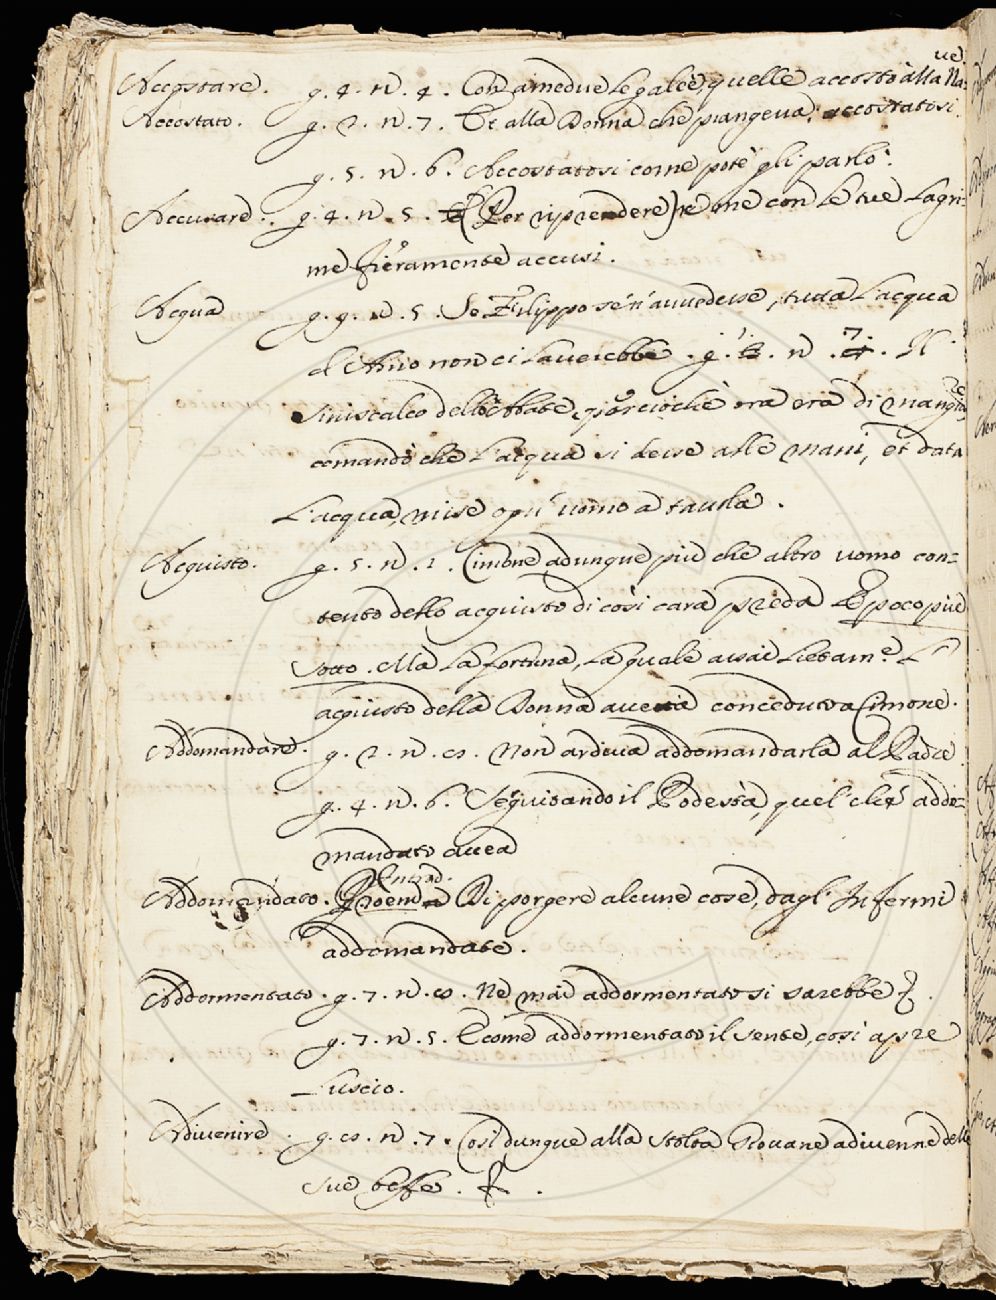 Accostare. g. 4. n. 4. Con amedue le galee, quelle accostò alla Na:
ve.
Accostato. g. 2. n. 7. Et alla Donna che piangeva, accostatosi.
g. 5. n. 6. Accostatosi come potè gli parlò.
Accusare. g. 4. n. 5. (Per riprendere) e me con le tue lagri:
me fieramente accusi.
Acqua g. 9. n. 5. Se Filippo se n'avvedesse, tutta l'acqua
d'Arno non ci laverebbe. g. n. 7. Il
siniscalco dell'Abate, perciochè ora era di mangia
re
comandò che l'acqua si desse alle mani, et data
L'acqua, mise ogn' uomo a tavola.
Acquisto. g. 5. n. 1. Cimone adunque più che altro uomo con:
tento dello acquisto di così cara preda E poco più
sotto. Ma la fortuna, la quale assai lietam.e L'
acquisto della Donna avea conceduta a Cimone.
Addomandare. g. 2. n. co. Non ardiva addomandarla al Padre
g. 4. n. 6. Seguitando il Podestà, quel che addo:
mandato avea
Introd.
Addomandato. Proem Di porgere alcune cose, dagl' Infermi
addomandate.
Addormentato. g. 7. n. co. Nè mai addormentato si sarebbe
g. 7. n. 5. E come addormentato il sente, così apre
L'uscio.
Adivenire. g. co. n. 7. Così dunque alla stolta Giovane adivenne delle
sue beffe.